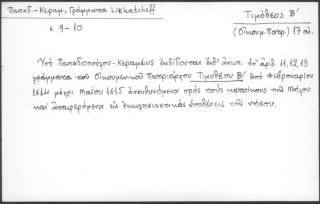 Παπαδ.-Κεραμ., Γράμματα Likhatcheff
σ. 9-10
Τιμόθεος Β'
(Οἰκουμ. Πατρ.) 17 αἰ.
Ὑπὸ Παπαδοπούλου-Κεραμέως ἐκδίδονται ὑπ' ἀρ. 11, 12, 13
γράμματα τοῦ Οἰκουμενικοῦ Πατριάρχου Τιμοθέου Β' ἀπὸ Φεβρουαρίου
1614 μέχρι Μαΐου 1615 ἀπευθυνόμενα πρὸς τοὺς κατοίκους τῆς Μήλου
καὶ ἀναφερόμενα εἰς ἐκκλησιαστικὰς ὑποθέσεις τῆς νήσου.